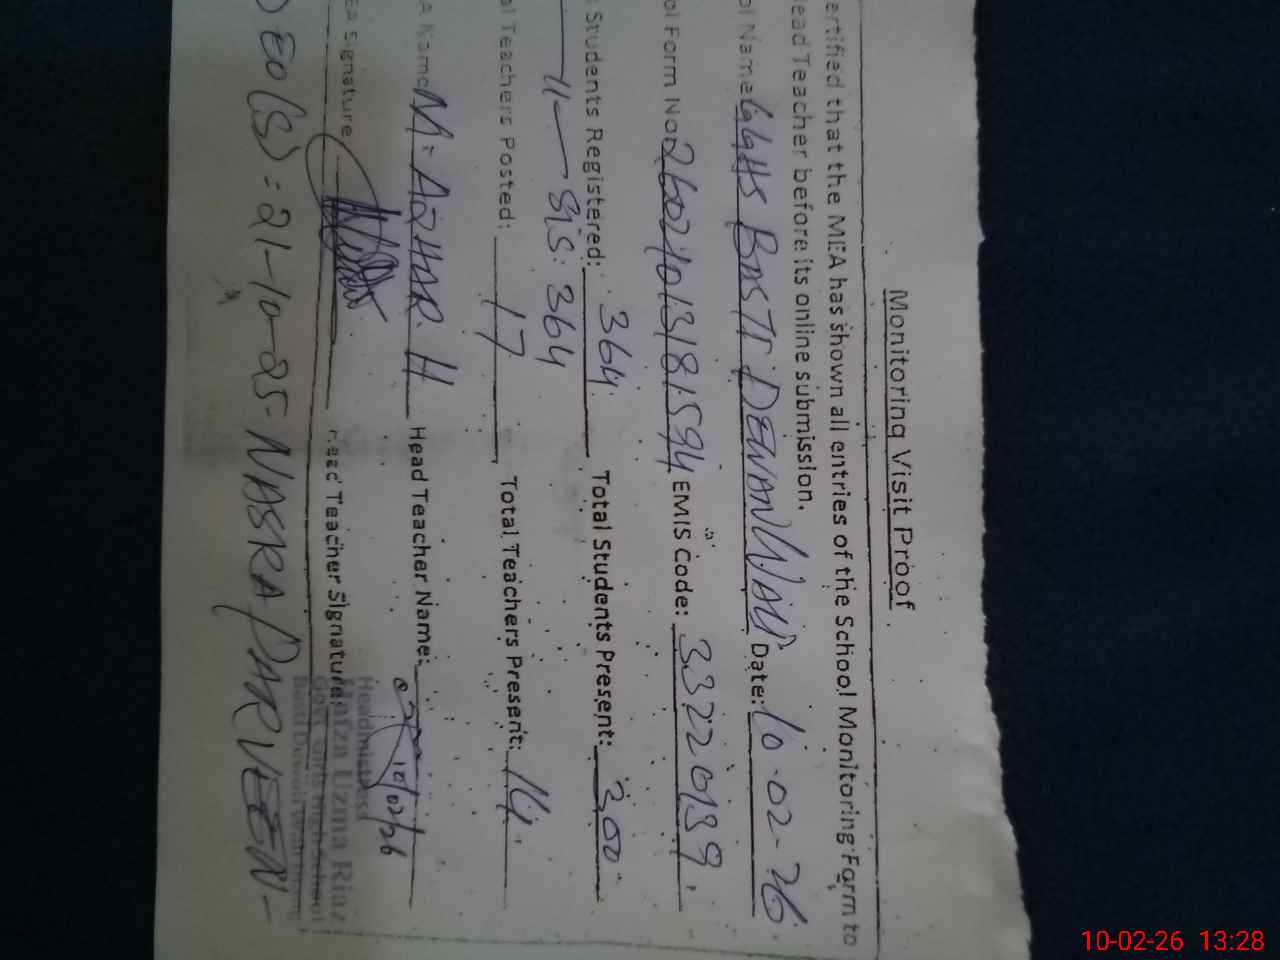 Monitoring Visit Proof
ertified that the MEA has shown all entries of the School Monitoring Form to
ead Teacher before its online submission.
ol Name GGHS BASTI DEWAN WALI Date: 10-02-26
ol Form No 26024013181594 EMIS Code: 33220139
Students Registered: 364 Total Students Present: 300
—11— SIS: 364
al Teachers Posted: 17 Total Teachers Present: 14
A Name M. AZHAR. H Head Teacher Name:
EA Signature Head Teacher Signature
10/02/26
Headmistress
Uzma Riaz
Govt. Girls High School
Basti Dewan
EO(S) = 21-10-25 = NASRA PARVEEN -
10-02-26 13:28